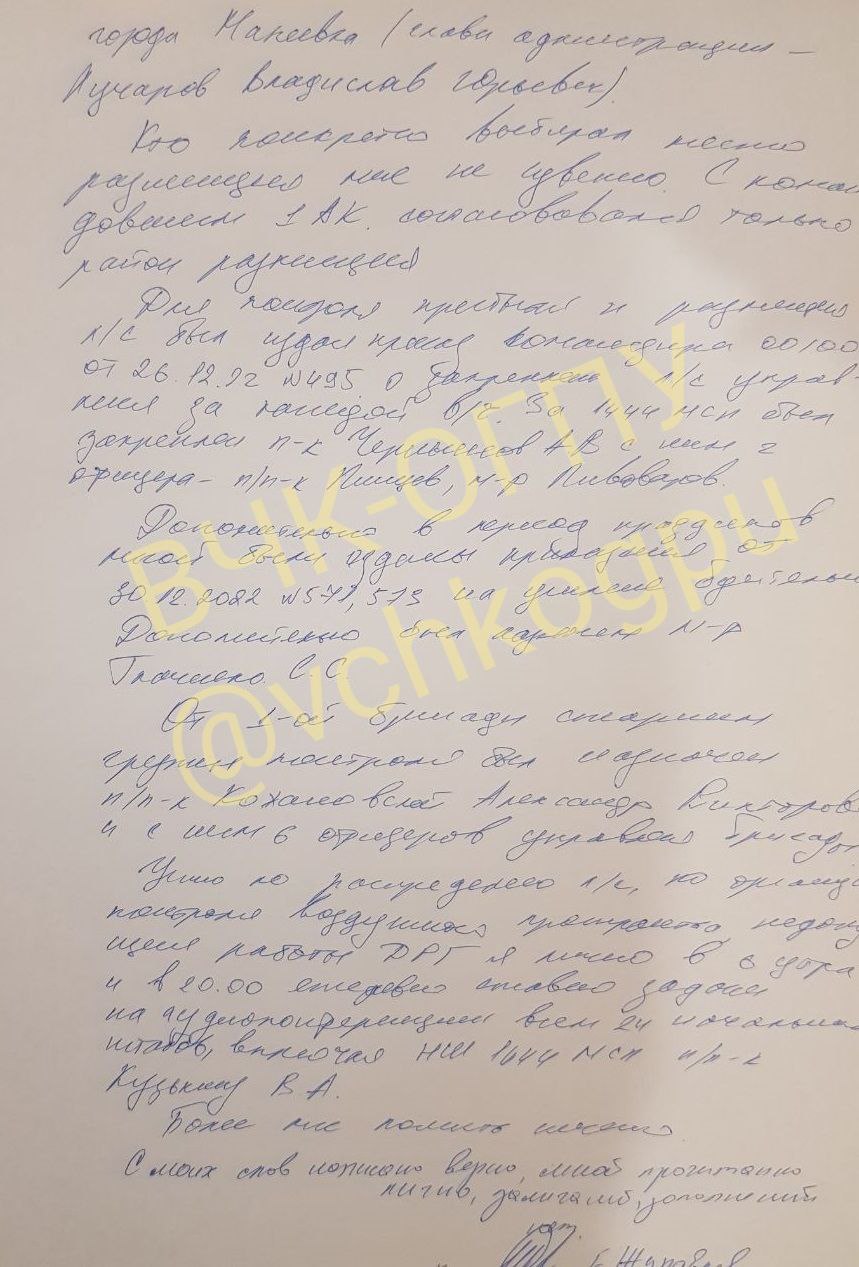 города Макеевка (глава администрации –
Ключаров Владислав Юрьевич).
Кто конкретно выбирал место
размещения мне не известно. С коман
дованием 1 АК. согласовывался только
район размещения
Для контроля прибытия и размещения
л/с был издан приказ командира 00100
от 26.12.22 №495 о закреплении л/с управ-
ления за каждой в/ч. За 1444 мсп был
закреплен п-к Чернышов АВ с ним 2
офицера – п/п-к Пишцев, м-р Пивоваров.
Дополнительно в период праздников
мной были изданы приказания от
30.12.2022 № 571, 573 на усиление бдительн
Дополнительно был назначен м-р
Ткаченко С.С.
От 1-ой бригады старшим
группы контроля был назначен
п/п-к Кохановский Александр Викторов
и с ним 6 офицеров управления бригады
Учили по распределению л/с, по организ
контроля воздушного пространства, недопу
щения работы ДРГ я лично в 6 утра
и в 20.00 ежедневно ставлю задачи
на аудиоконференции всем 24 начальник
штабов, включая НШ 1444 мсп п/п-к
Кузькину В А.
Более мне пояснить нечего
С моих слов написано верно, мной прочитано
лично, замечаний, дополнений
нет.
ВЧК-ОГПУ
@vchkogpu